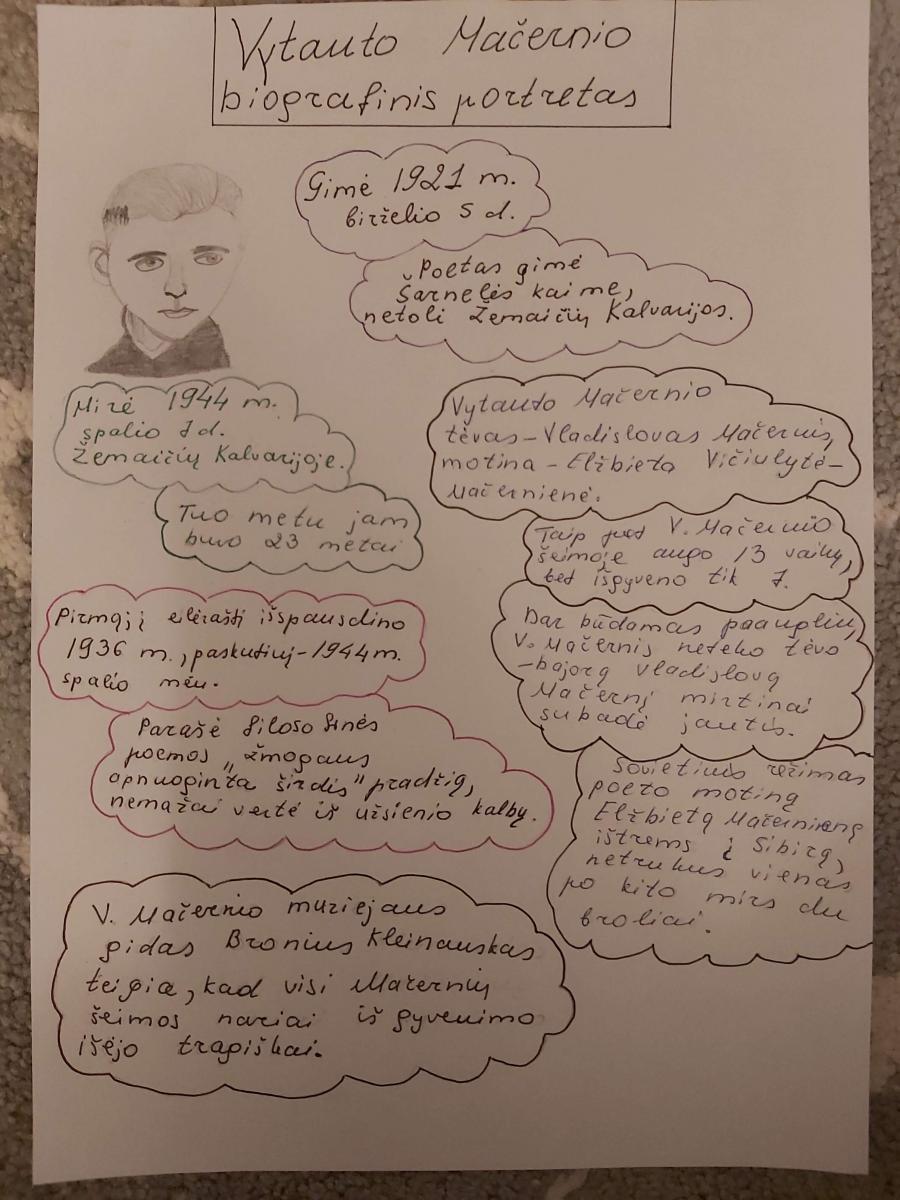 Vytauto Mačernio
biografinis portretas
Gimė 1921 m.
birželio 5 d.
„Poetas gimė
Šarnelės kaime,
netoli Žemaičių Kalvarijos.
Mirė 1944 m.
spalio 7 d.
Žemaičių Kalvarijoje.
Tuo metu jam
buvo 23 metai
Vytauto Mačernio
tėvas – Vladislovas Mačernis,
motina – Elžbieta Vičiulytė –
Mačernienė.
Taip pat V. Mačernio
šeimoje augo 13 vaikų,
bet išgyveno tik 7.
Dar būdamas paaugliu,
V. Mačernis neteko tėvo
– bajorą Vladislovą
Mačernį mirtinai
subadė jautis.
Sovietinis režimas
poeto motiną
Elžbietą Mačernieną
ištrems į Sibirą,
netrukus vienas
po kito mirs du
broliai.
Pirmąjį eilėraštį išspausdino
1936 m., paskutinį – 1944 m.
spalio mėn.
Parašė filosofinės
poemos „Žmogaus
apnuoginta širdis" pradžią,
nemažai vertė iš užsienio kalbų.
V. Mačernio muziejaus
gidas Bronius Kleinauskas
teigia, kad visi Mačernių
šeimos nariai iš gyvenimo
išėjo tragiškai.